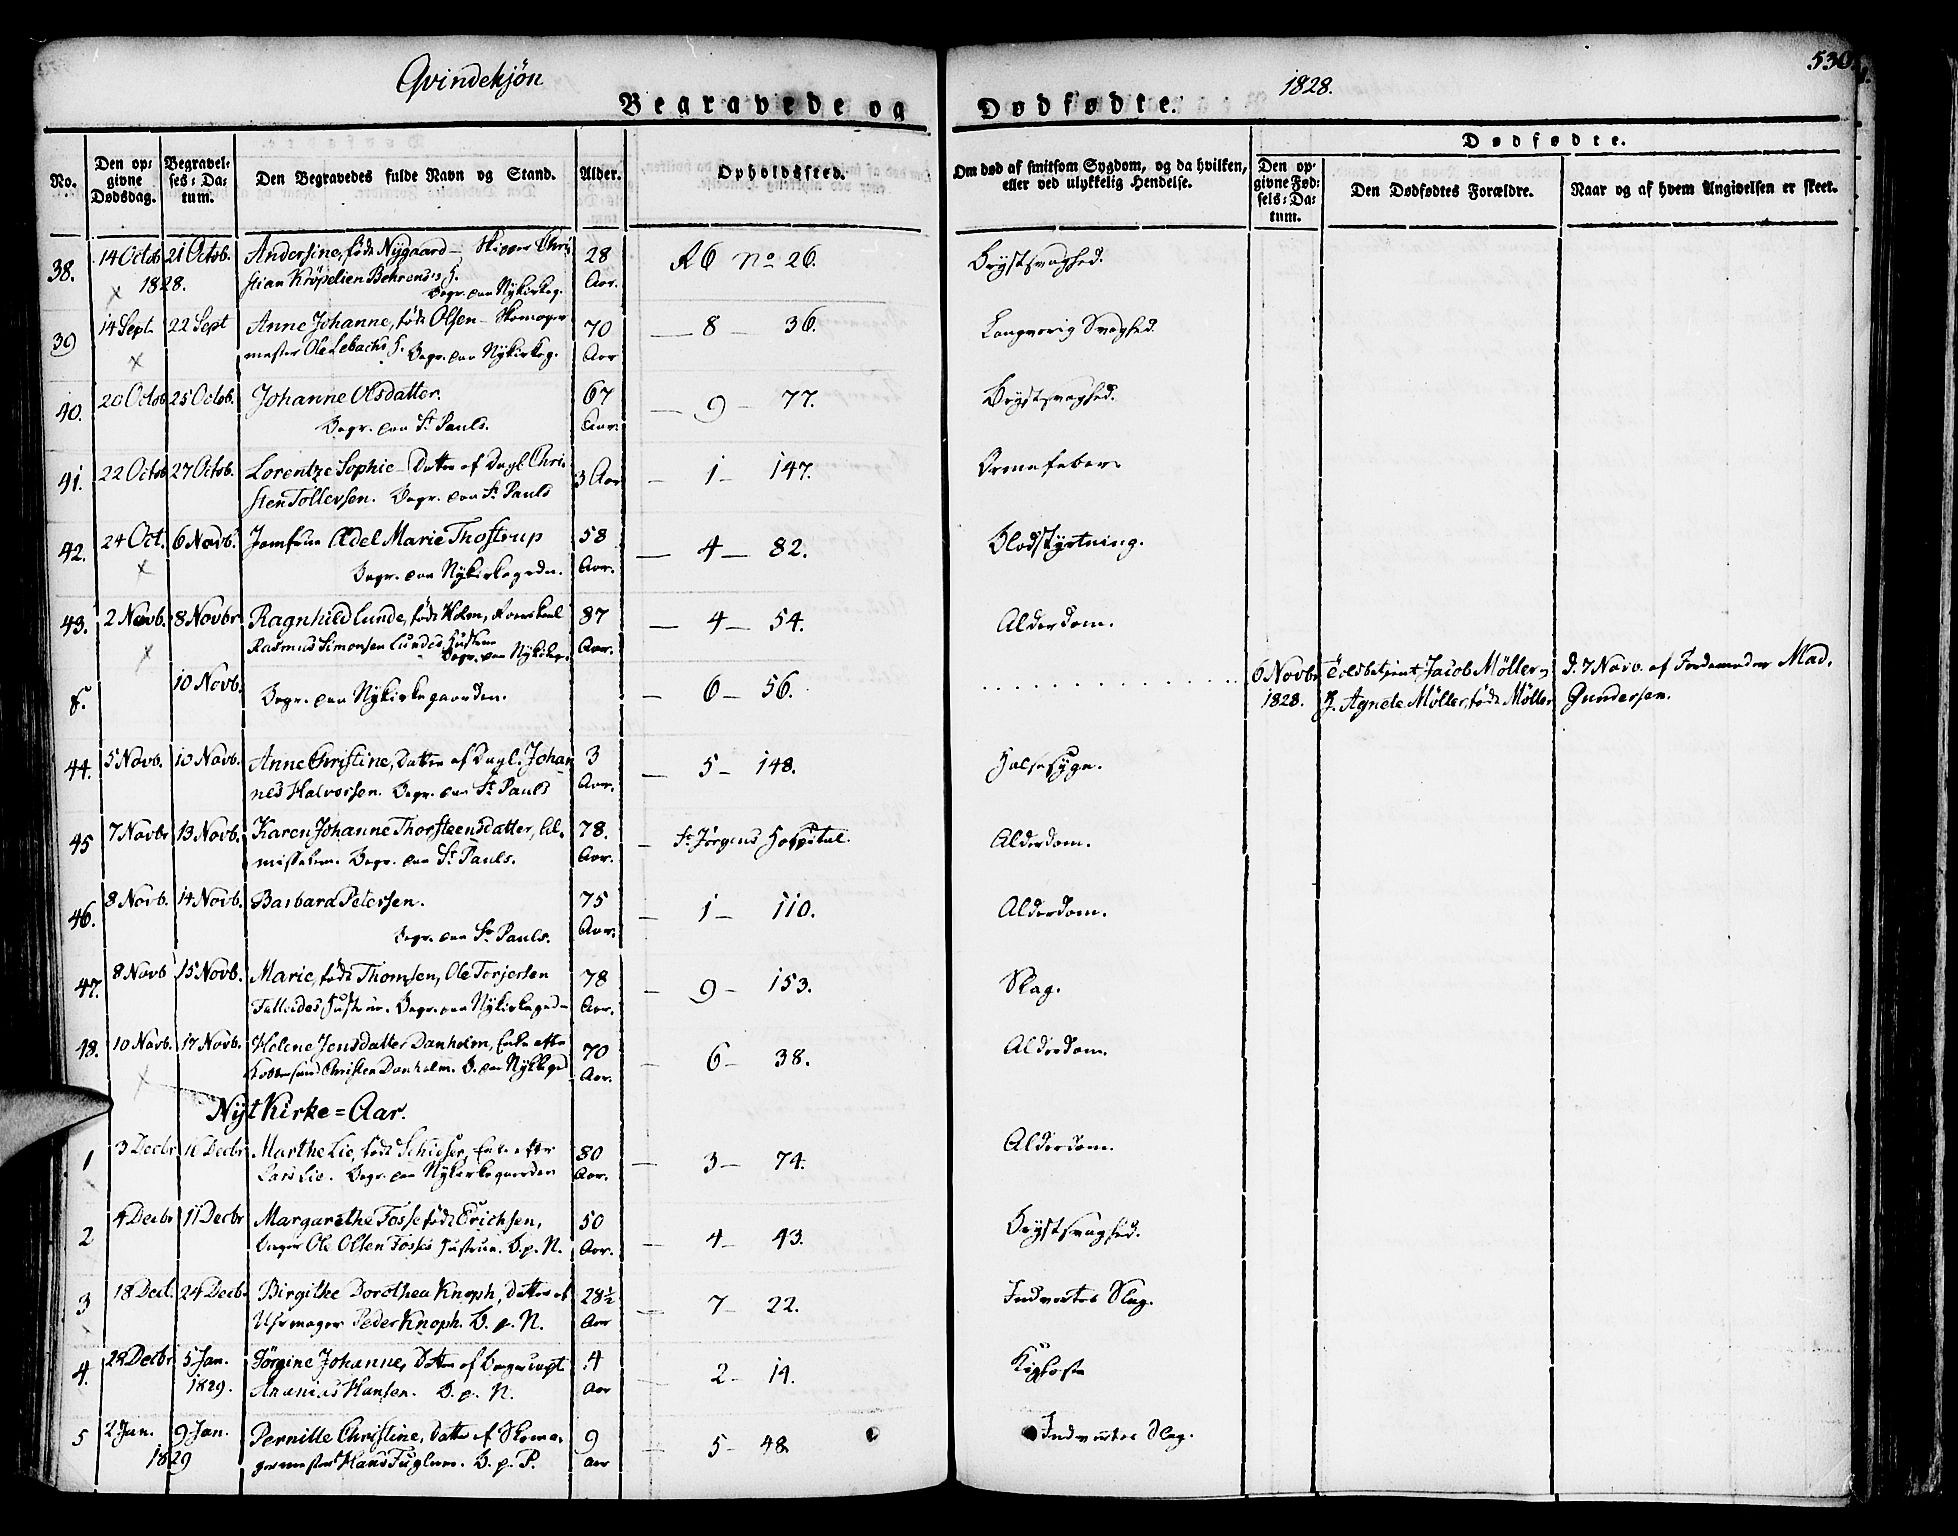 Qvindekjön
1828.
530
Begravede og Dødfødte.
No.
Den opgivne Dødsdag.
Begravelses-Datum.
Den Begravedes fulde Navn og Stand.
Alder.
Opholdssted.
Om død af smitsom Sygdom, og da hvilken,
eller ved ulykkelig Hendelse.
Dødfødte.
Den opgivne Fødsels-Datum.
Den Dødfødtes Forældre.
Naar og af hvem Angivelsen er skeet.
38. 14 Octob 21 Octob. Andersine, født Nygaard, Skipper Chri- 28 R6 No 26. Brystsvaghed.
1828. stian Kröpelien Behrens's H. Aar.
Begr. paa Nykirkeg.
39 14 Sept. 22 Sept Anne Johanne, født Olsen Skomager 70 — 8 — 36. Langvarig Svaghed.
mester Ole Lebachs H. Begr. paa Nykirkeg. Aar
40. 20 Octob 25 Octob. Johanne Olsdatter. 67 — 9 — 77. Brystsvaghed.
Begr. paa St. Pauls. Aar.
41. 22 Octob 27 Octob. Lorentze Sophie Datter af Dagl. Chri- 3 Aar — 1 — 147. Ormefeber
sten Tollevsen. Begr. paa St. Pauls
42. 24 Oct. 6 Novb. Jomfrue Adel Marie Thostrup 58 — 4 — 82. Blodstyrtning.
Begr. paa Nykirkegrdn. Aar.
43. 2 Novb. 8 Novbr Ragnhild Lunde, født Holm, 87 — 4 — 54. Alderdom.
Rasmus Simonsen Lundes Hustrue Aar.
Begr. paa Nykirkeg.
10 Novb. Begr. paa Nykirkegaarden. — 6 — 56. 6 Novbr Toldbetjent Jacob Möller d. 7 Novb. af Jordemoder Mad.
1828. H. Agnete Möller, født Möller Gundersen.
44. 5 Novb. 10 Novb. Anne Christine, Datter af Dagl. Johan 3 — 5 — 148. Halssyge.
nes Halvorsen. Begr. paa St. Pauls Aar.
45 7 Novbr 13 Novb. Karen Johanne Thorsteensdatter, Al- 78. — St. Jörgens Hospital. Alderdom.
misselem. Begr. paa St. Pauls. Aar.
46. 8 Novb. 14 Novb. Barbara Petersen. 75 — 1 — 110. Alderdom.
Begr. paa St. Pauls. Aar.
47. 8 Novb 15 Novb. Marie, født Thomsen, Ole Torjersen 78 — 9 — 153. Slag.
Hustrue. Begr. paa Nykirkegrd Aar.
48. 10 Novb. 17 Novb. Helene Jensdatter Danholm, Enke efter 70 — 6 — 38. Alderdom.
Christen Danholm. B. paa Nykkegrd Aar.
Nyt Kirke=Aar.
1 3 Decbr 16 Decbr Marthe Lie, født Enke efter 80 — 3 — 74. Alderdom.
Lars Lie. Begr. paa Nykirkegaarden Aar.
2 4 Decbr 11 Decbr Margarethe Fosse født Erichsen, 50 — 4 — 43. Brystsvaghed.
Ole Olsen Fosses Hustrue. B. p. N. Aar.
3 18 Dec. 24 Decb. Birgithe Dorothea Knoph, Datter af 28½ — 7 — 22. Indvortes Slag.
Uhrmager Peder Knoph. B. p. N. Aar
4. 28 Decbr 5 Jan. Jörgine Johanne, Datter af 4 — 2 — 14. Kighoste
1829. Ananias Hansen. B. p. N. Aar
5 2 Jan. 9 Jan. Pernille Christine, Datter af Skoma- 9 — 5 — 48 Indvortes Slag.
1829 germester Hans Fuglum. B. p. P. aar